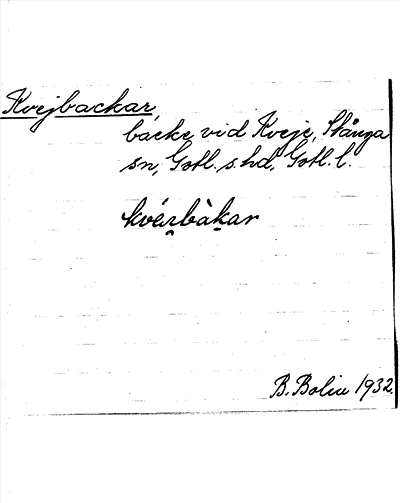 Kvejbackar,
backe vid Kveje, Stånga
sn, Gotl. s. hd, Gotl. l.
B. Bolin 1932.